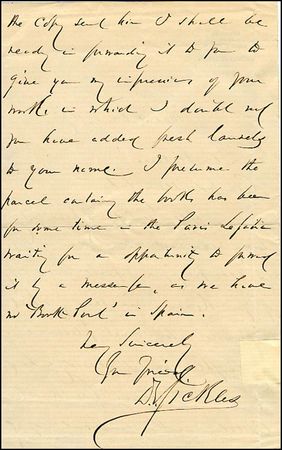 the Copy sent him I shall be
ready in forwarding it to you to
give you my impressions of your
works, in which I doubt not
you have added fresh laurels
to your name. I presume the
parcel containing the books has been
for some time in the Paris Legation
waiting for a opportunity to forward
it by a messenger, as we have
no 'Book Post' in Spain.
Very Sincerely
Your friend
D. Sickles